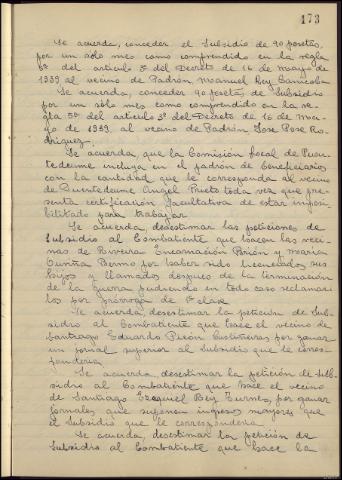 173
Se acuerda, conceder el Subsidio de 90 pesetas,
por un sólo mes como comprendido en la regla
5ª del articulo 3º del Decreto de 16 de Mayo de
1939 al vecino de Padrón, Manuel Rey
Se acuerda, conceder 90 pesetas de Subsidio
por un sólo mes como comprendido en la re-
gla 5ª del articulo 3º del Decreto de 16 de Ma-
yo de 1939, al vecino de Padrón, Jose Pose Ro-
driguez.
Se acuerda, que la Comisión local de Puen-
tedeume incluya en el padrón de beneficiarios
con la cantidad que le corresponda al vecino
de Puentedeume Angel Prieto toda vez que pre-
senta certificación facultativa de estar imposi-
bilitado para trabajar.
Se acuerda, desestimar las peticiones de
Subsidio al Combatiente que hacen las veci-
nas de Riveira Encarnación y Maria
por haber sido licenciados sus
hijos y llamados despues de la terminación
de la guerra pudiendo en todo caso reclamar
los por prórroga de 1ª clase
Se acuerda, desestimar la peticion de Sub-
sidio al Combatiente que hace el vecino de
Santiago Eduardo por ganar
un jornal superior al Subsidio que le corres-
ponderia.
Se acuerda, desestimar la petición de Sub-
sidio al Combatiente que hace el vecino
de Santiago Ezequiel Rey por ganar
jornales que suponen ingresos mayores que
el Subsidio que le corresponderia.
Se acuerda, desestimar la petición de
Subsidio al Combatiente que hace la